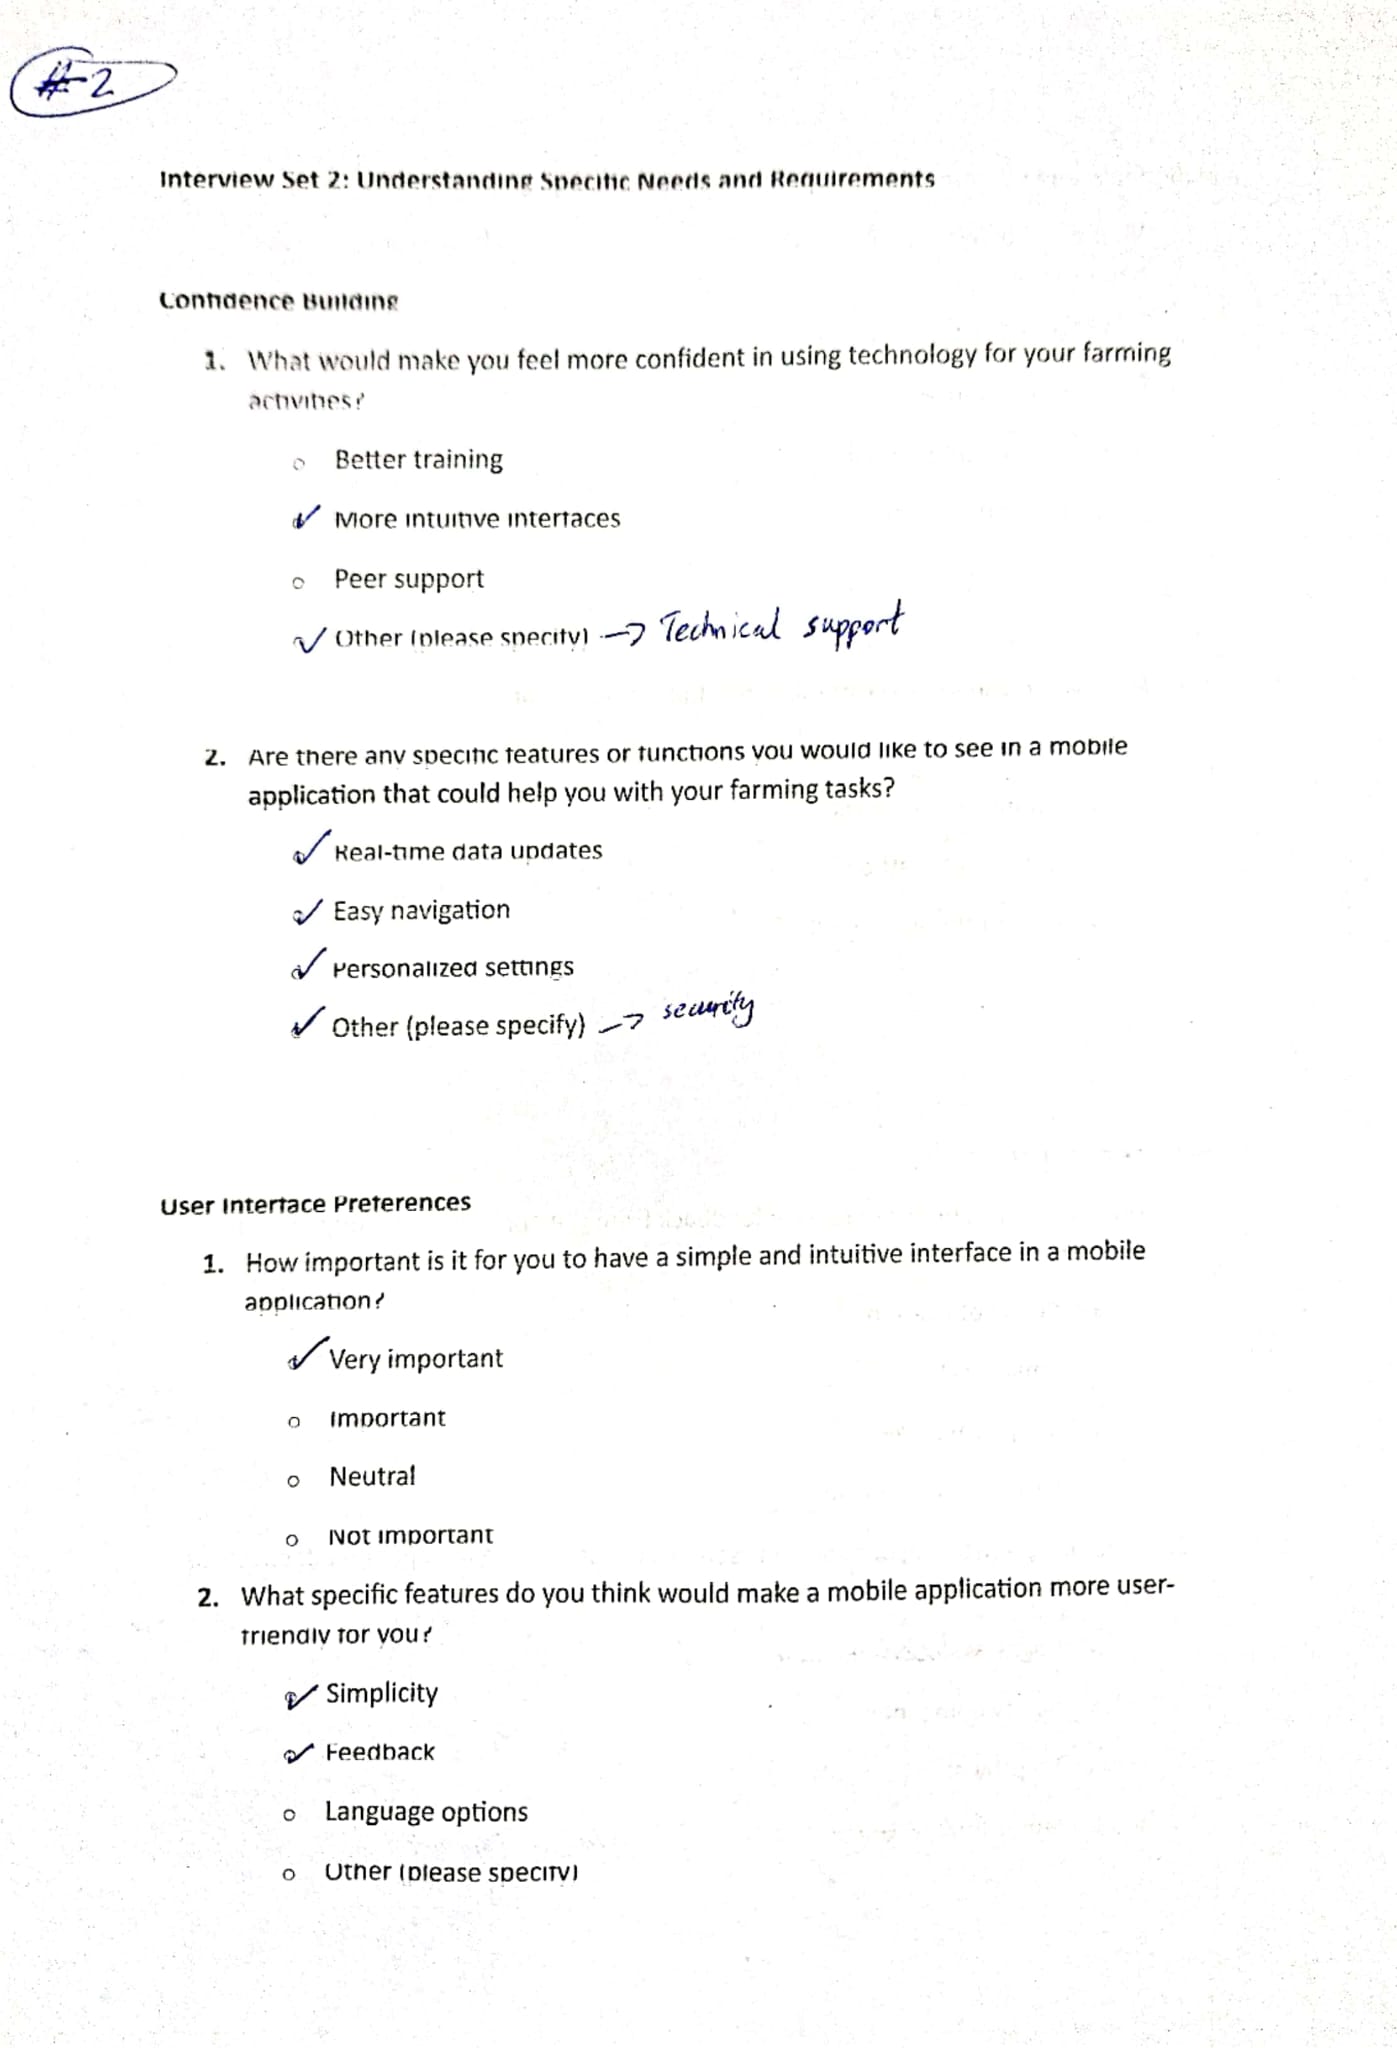 #2
Interview Set 2: Understanding Specific Needs and Requirements
Confidence Building
1. What would make you feel more confident in using technology for your farming
activities?
Better training
More intuitive interfaces
Peer support
Other (please specify) → Technical support
2. Are there any specific features or functions you would like to see in a mobile
application that could help you with your farming tasks?
Real-time data updates
Easy navigation
Personalized settings
Other (please specify) → security
User Interface Preferences
1. How important is it for you to have a simple and intuitive interface in a mobile
application?
Very important
Important
Neutral
Not important
2. What specific features do you think would make a mobile application more user-
friendly for you?
Simplicity
Feedback
Language options
Other (please specify)